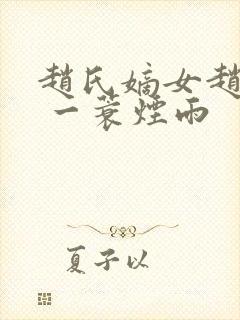 趙氏嫡女趙
一蓑煙雨
夏子以